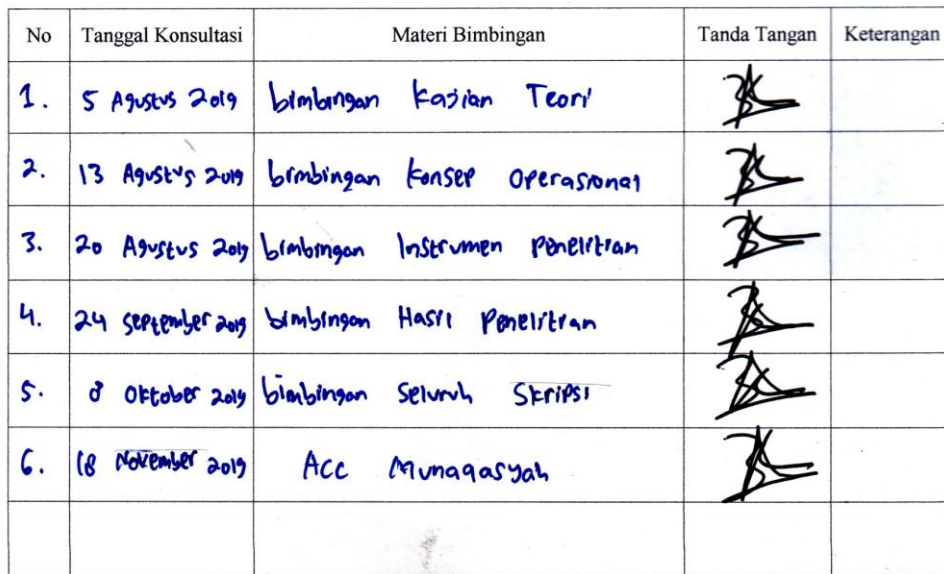 No Tanggal Konsultasi Materi Bimbingan Tanda Tangan Keterangan
1. 5 Agustus 2019 bimbingan Kajian Teori
2. 13 Agustus 2019 bimbingan Konsep Operasional
3. 20 Agustus 2019 bimbingan Instrumen Penelitian
4. 24 September 2019 bimbingan Hasil Penelitian
5. 8 Oktober 2019 bimbingan Seluruh Skripsi
6. 18 November 2019 Acc Munaqasyah